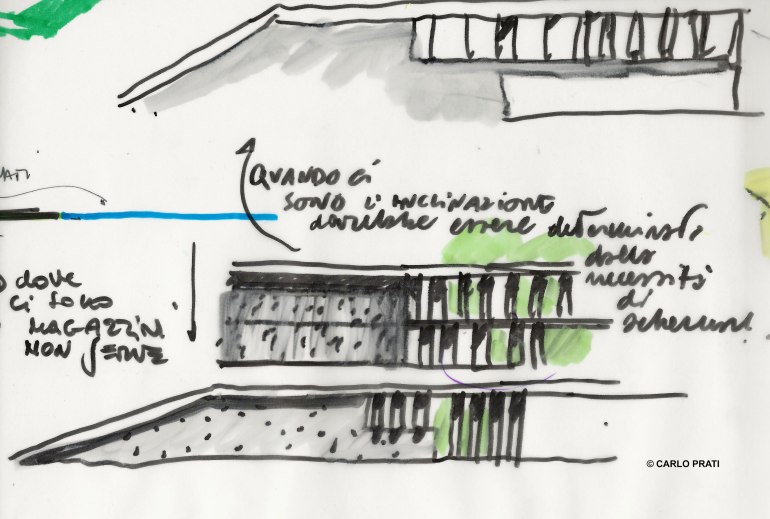 QUANDO CI
SONO L'INCLINAZIONE
dovrebbe essere determinata
dalla
necessità
di
schermare
dove
CI SONO
MAGAZZINI
NON SERVE
© CARLO PRATI